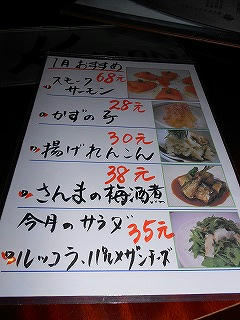 1月おすすめ
スモーク 68元
サーモン
28元
かずの子
30元
揚げれんこん
38元
さんまの梅酒煮
今月のサラダ
35元
ルッコラ、パルメザンチーズ